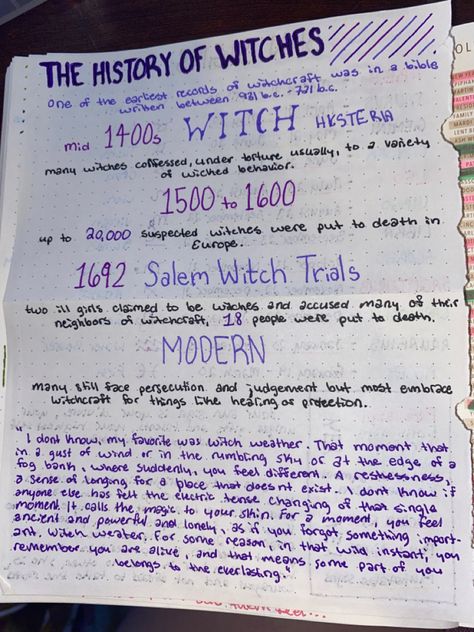 THE HISTORY OF WITCHES
one of the earliest records of witchcraft was in a bible
written between 931 b.c. - 721 b.c.
mid 1400s WITCH HYSTERIA
many witches coffessed, under torture usually, to a variety
of wicked behavior.
1500 to 1600
up to 20,000 suspected witches were put to death in
Europe.
1692 Salem Witch Trials
two ill girls claimed to be witches and accused many of their
neighbors of witchcraft, 18 people were put to death.
MODERN
many still face persecution and judgement but most embrace
witchcraft for things like hearing or protection.
"I dont know, my favorite was witch weather. That moment that
in a gust of wind or in the rumbling sky or at the edge of a
fog bank, where suddenly, you feel different. A restlessness,
a sense of longing for a place that doesnt exist. I dont know if
anyone else has felt the electric tense changing of that single
moment. It calls the magic to your skin. For a moment, you feel
ancient and powerful and lonely, as if you forgot something import-
ant. Witch weater. For some reason, in that wild instant, you
remember you are alive, and that means some part of you
belongs to the everlasting."